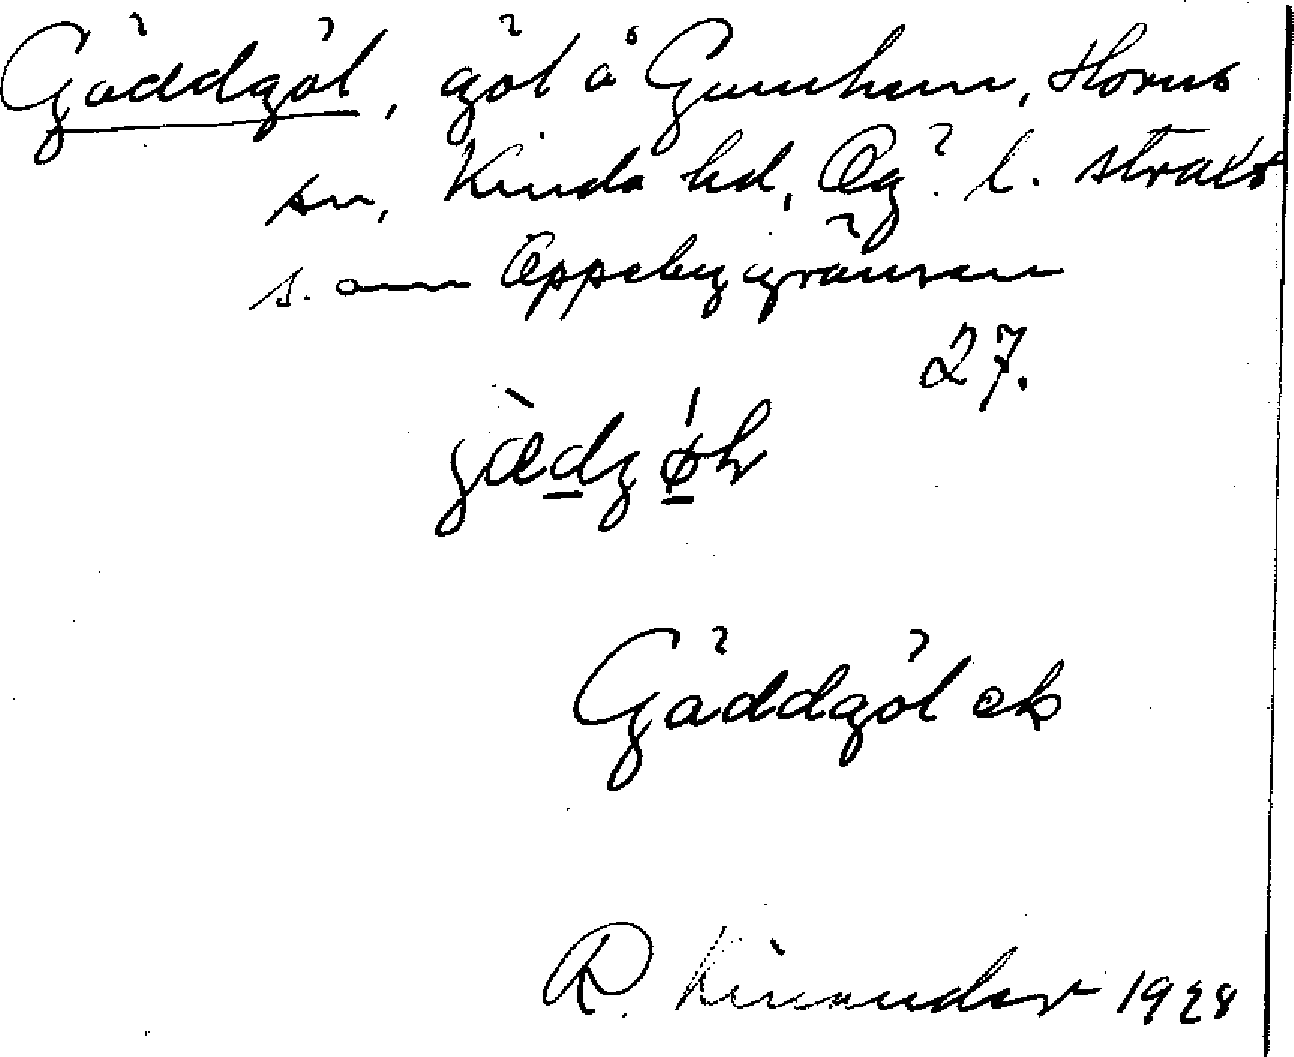 Gäddgöl, göl å Gumhem, Horns
sn, Kinda hd, Ög. l. strax
s. om Oppebygränsen
27.
Gäddgöl ek
R. Kinander 1928